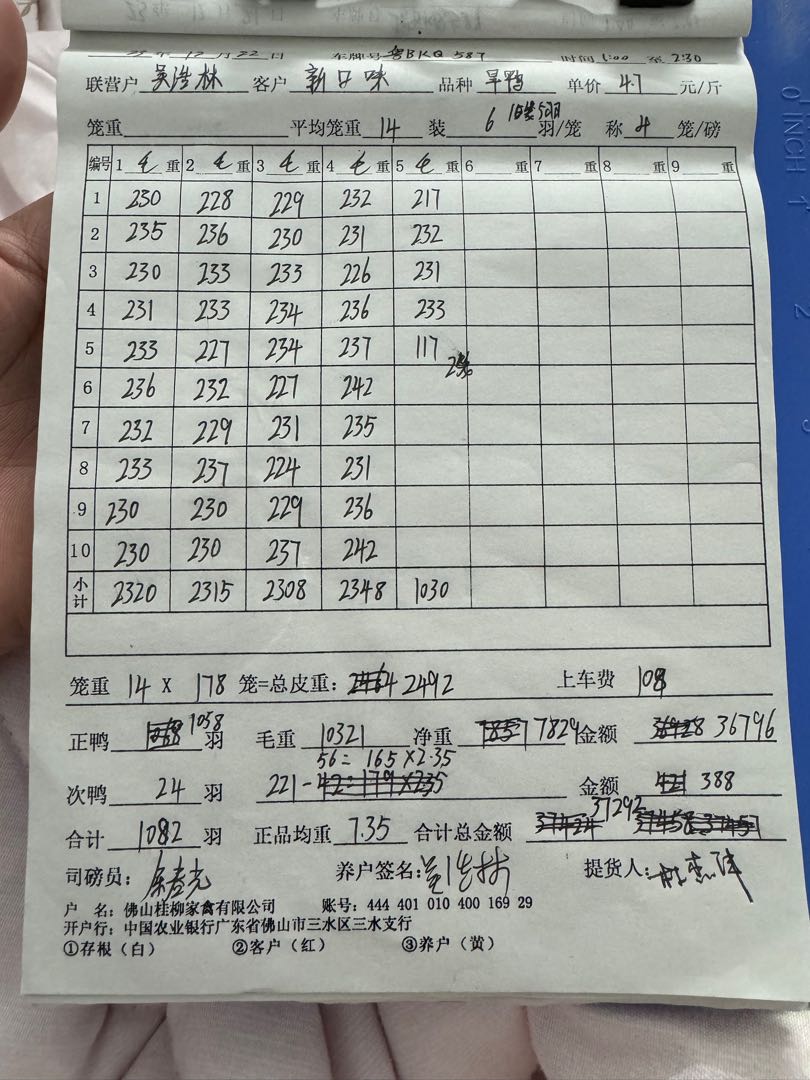 25 年 12 月 22 日 车牌号 粤BKQ 587 时间 1:00 至 2:30
联营户 吴浩林 客户 新口味 品种 旱鸭 单价 4.7 元/斤
笼重 平均笼重 14 装 6 羽/笼 称 4 笼/磅
编号 1 毛 重 2 毛 重 3 毛 重 4 毛 重 5 毛 重 6 重 7 重 8 重 9 重
1 230 228 229 232 217
2 235 236 230 231 232
3 230 233 233 226 231
4 231 233 234 236 233
5 233 227 234 237 117
6 236 232 227 242
7 232 229 231 235
8 233 237 224 231
9 230 230 229 236
10 230 230 237 242
小计 2320 2315 2308 2348 1030
笼重 14 X 178 笼=总皮重: 2492 上车费 108
正鸭 1058 羽 毛重 10321 净重 7829 金额 36796
56= 165×2.35
次鸭 24 羽 221- 42=179×235 金额 388
合计 1082 羽 正品均重 7.35 合计总金额 37292
司磅员: 养户签名: 提货人:
户 名: 佛山桂柳家禽有限公司 账号: 444 401 010 400 169 29
开户行: 中国农业银行广东省佛山市三水区三水支行
①存根(白) ②客户(红) ③养户(黄)
0 INCH 1
2
3